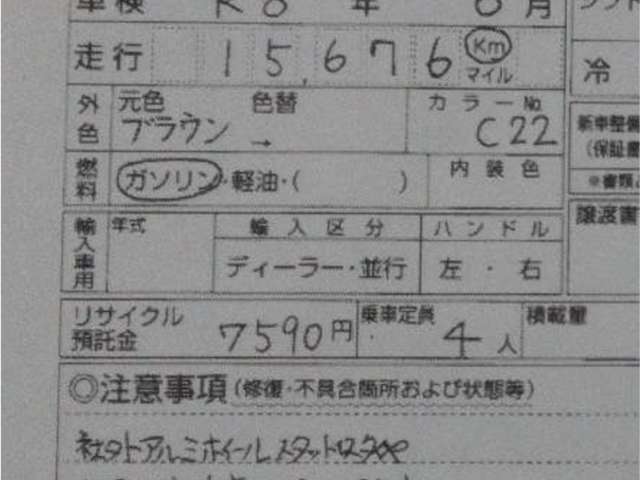 車検 R8年 6月
走行 15,676 Km マイル
冷
外色 元色 ブラウン → 色替 カラーNo C22
燃料 ガソリン・軽油・( ) 内装色
新車整備
(保証書
※書類
輸入車用 年式 輸入区分 ハンドル
ディーラー・並行 左・右
譲渡書
リサイクル預託金 7590円 乗車定員 4人 積載量
◎注意事項(修復・不具合箇所および状態等)
社外アルミホイール スタットロス